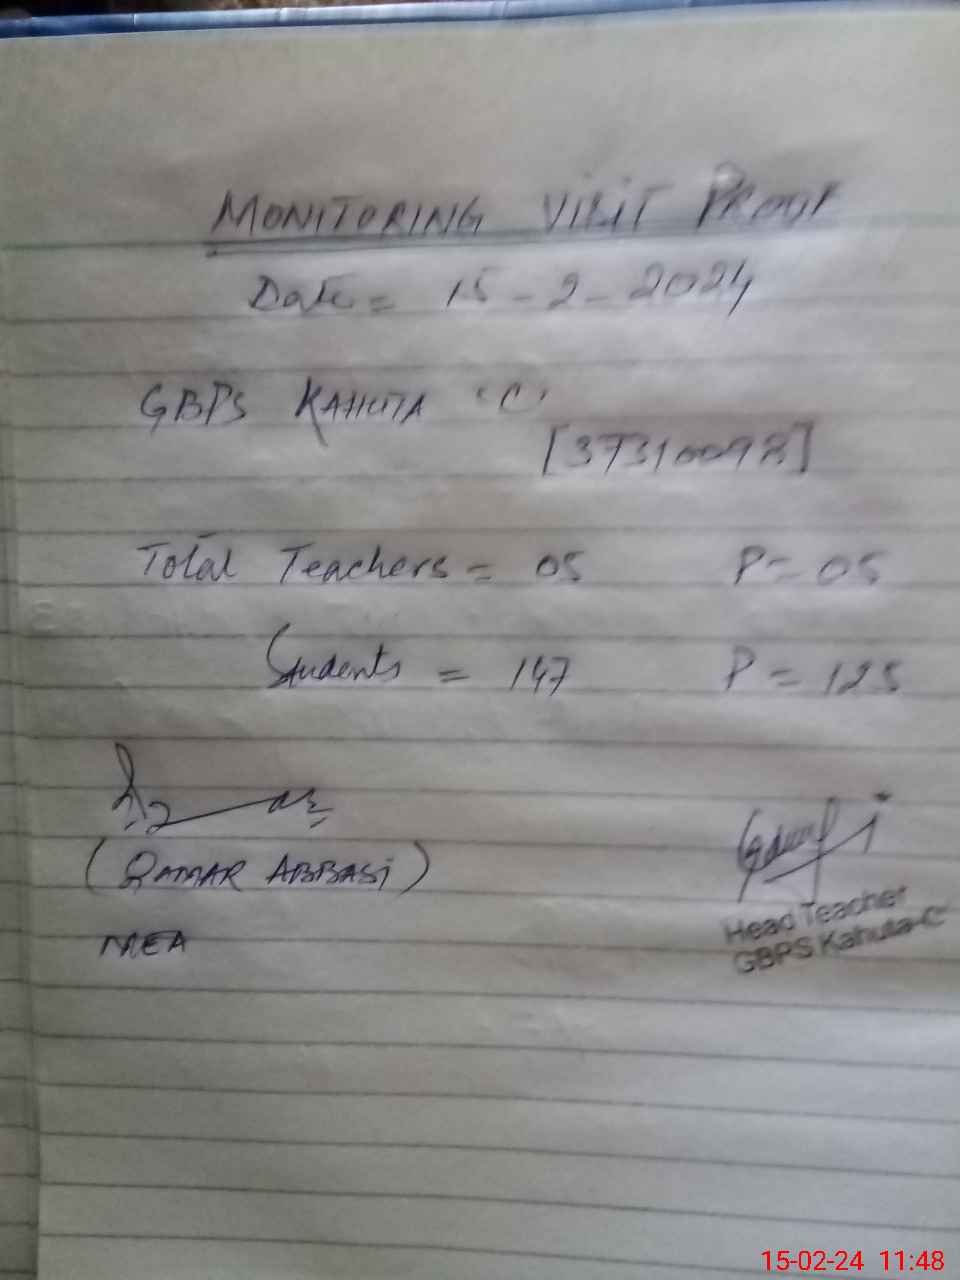 MONITORING VISIT PROOF
Date = 15-2-2024
GBPS KAHUTA 'C'
[37310098]
Total Teachers = 05 P = 05
Students = 147 P = 125
(QAMAR ABBASi)
MEA
Head Teacher
GBPS Kahuta-C
15-02-24 11:48